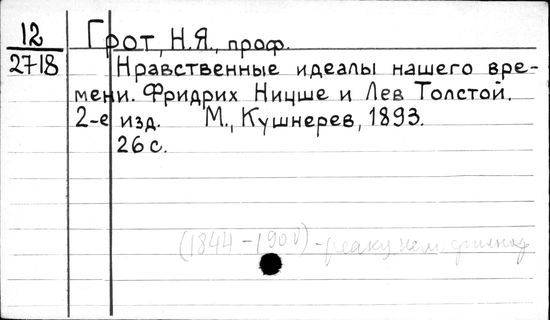 12
2718
Грот, Н.Я., проф.
Нравственные идеалы нашего вре-
мени. Фридрих Ницше и Лев Толстой.
2-е изд. М., Кушнерев, 1893.
26 с.
(1844-1900)-реакц нем. философ